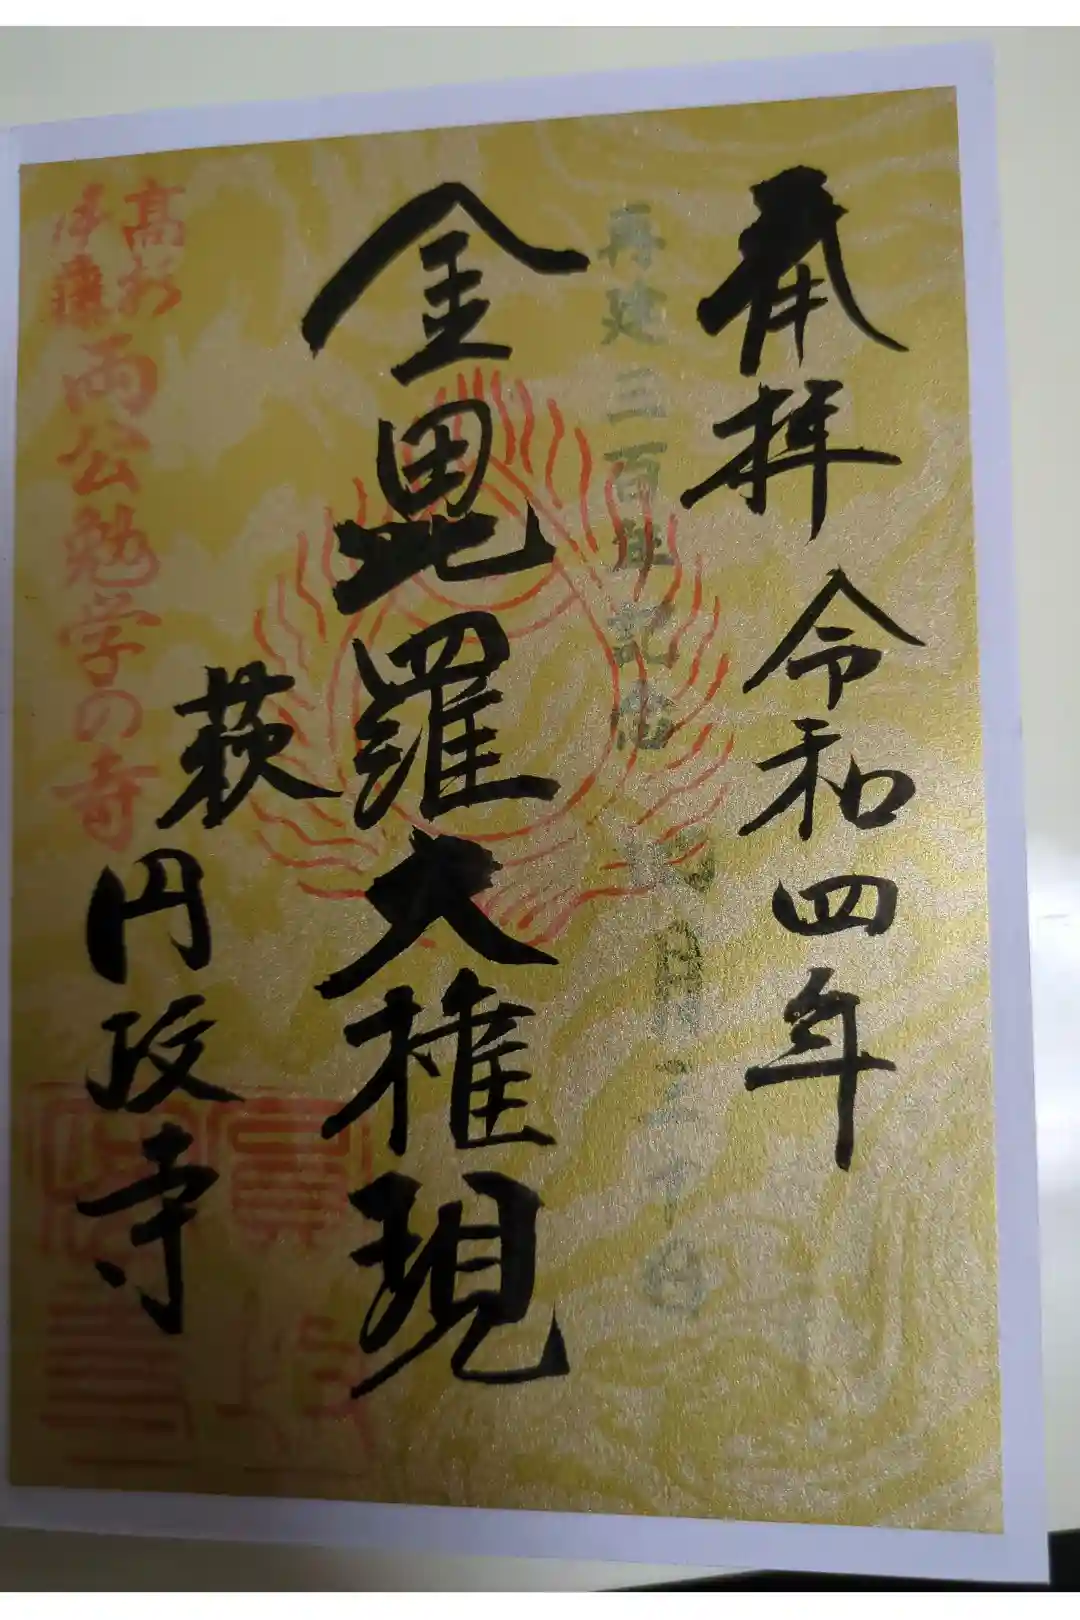 奉拝 令和四年
再建三百年記念
月三十日
金毘羅大権現
萩 円政寺
高杉
伊藤
両公勉学の寺